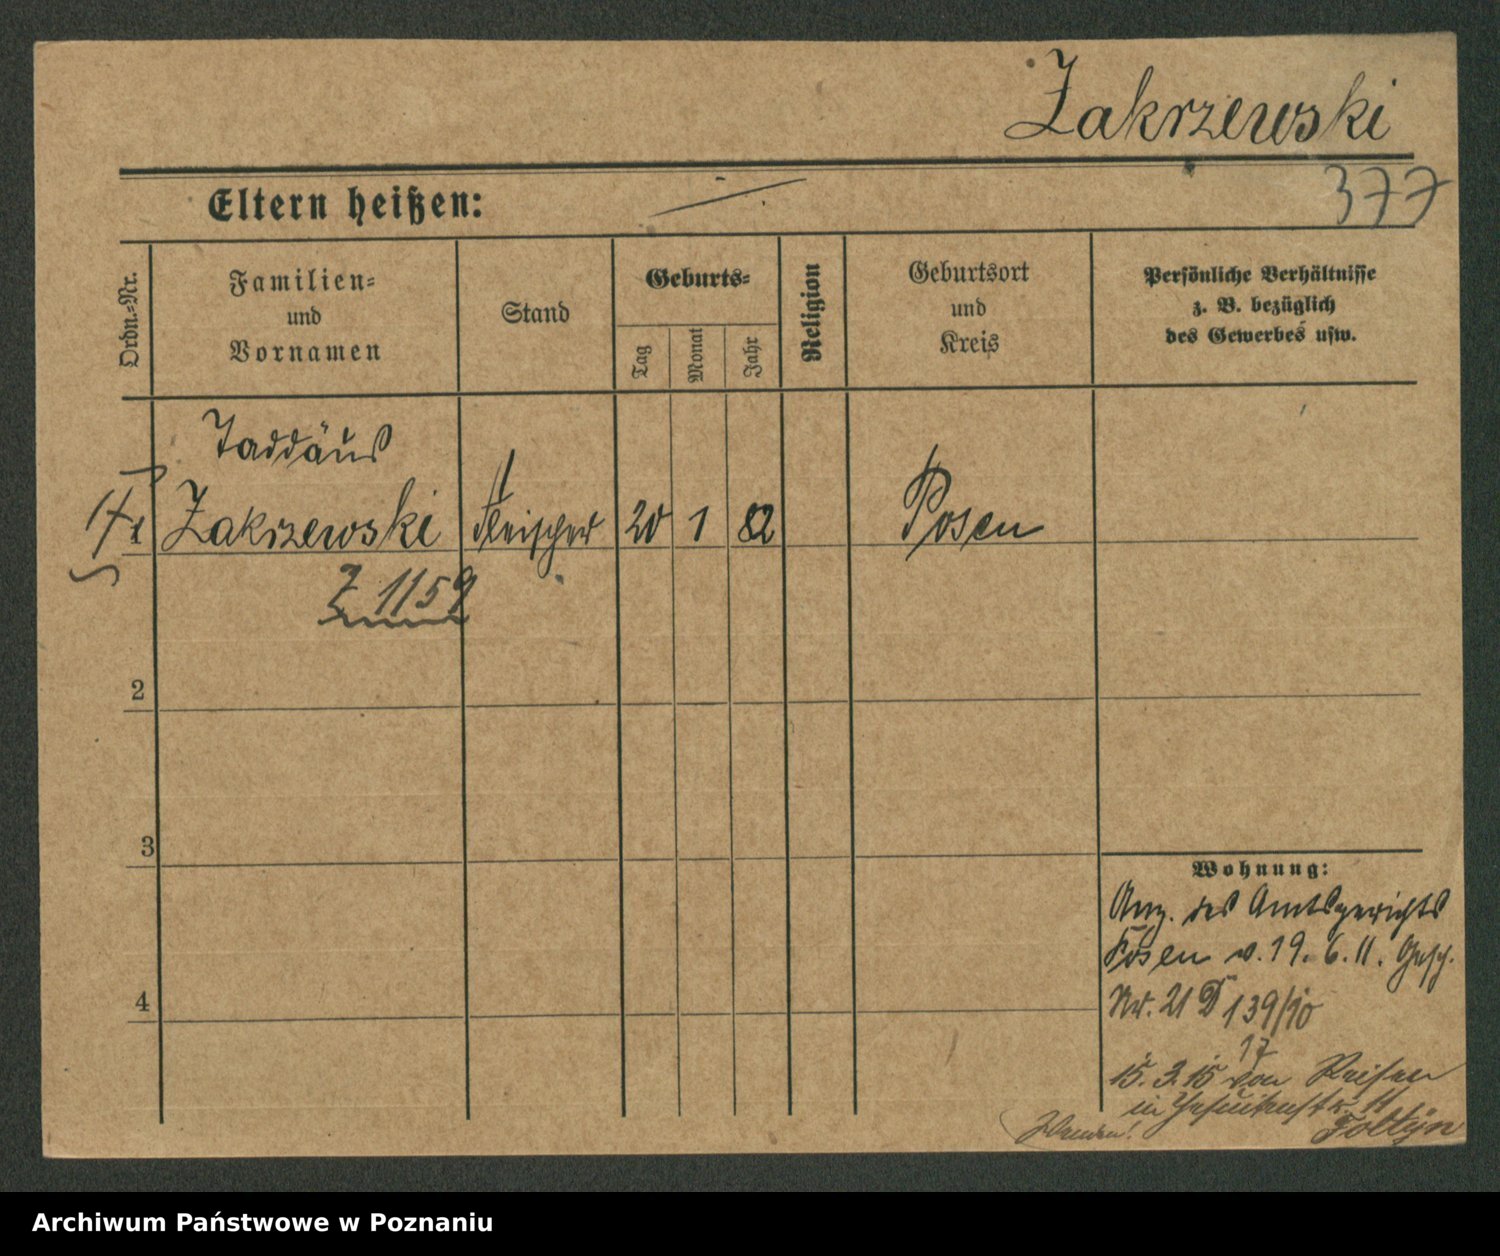 Zakrzewski
377
Eltern heißen:
Ordn.-Nr.
Familien-
und
Vornamen
Stand
Geburts-
Tag
Monat
Jahr
Religion
Geburtsort
und
Kreis
Persönliche Verhältnisse
z. B. bezüglich
des Gewerbes usw.
Taddäus
1 Zakrzewski Fleischer 20 1 82 Posen
Z 1159
2
3
4
Wohnung:
Anz. des Amtsgerichts
Posen v. 19. 6. 11. Gesch.
Nr. 21 D 139/10
17
15. 3. 15 von Reisen
in Jesuitenstr. 11
Foltyn
Wenden!
Archiwum Państwowe w Poznaniu